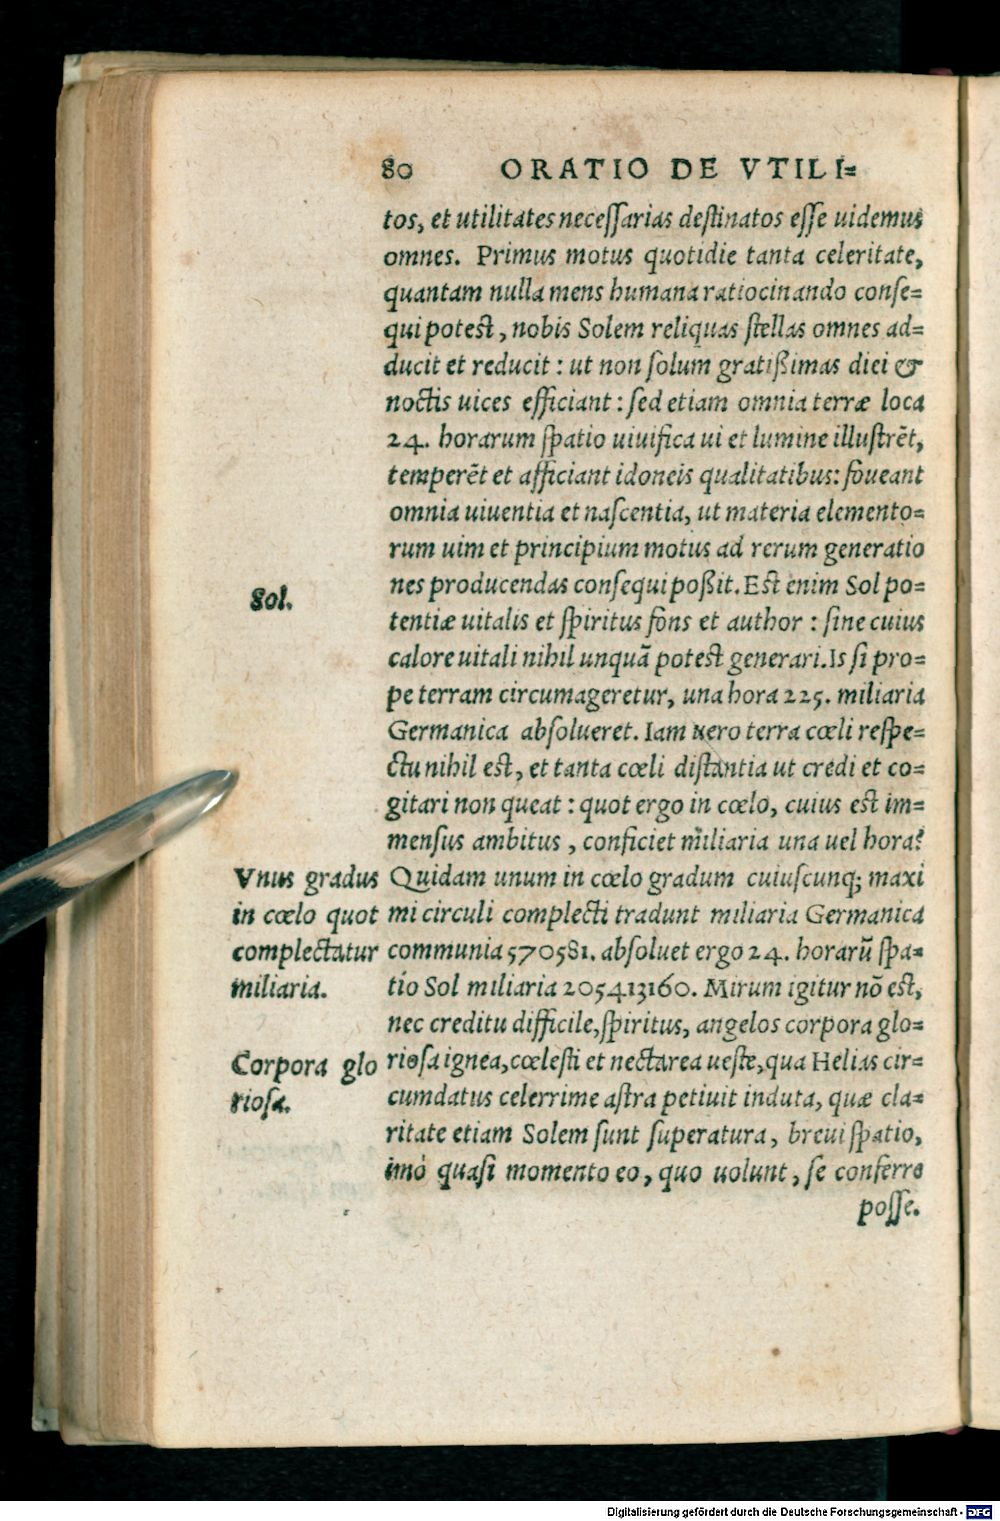 80 ORATIO DE VTILI=
tos, et utilitates necessarias destinatos esse uidemus
omnes. Primus motus quotidie tanta celeritate,
quantam nulla mens humana ratiocinando conse=
qui potest, nobis Solem reliquas stellas omnes ad=
ducit et reducit : ut non solum gratißimas diei &
noctis uices efficiant : sed etiam omnia terræ loca
24. horarum spatio uiuifica ui et lumine illustrēt,
temperēt et afficiant idoneis qualitatibus: foueant
omnia uiuentia et nascentia, ut materia elemento=
rum uim et principium motus ad rerum generatio
nes producendas consequi poßit. Est enim Sol po=
Sol.
tentiæ uitalis et spiritus fons et author : sine cuius
calore uitali nihil unquā potest generari. Is si pro=
pe terram circumageretur, una hora 225. miliaria
Germanica absolueret. Iam uero terra cœli respe=
ctu nihil est, et tanta cœli distantia ut credi et co=
gitari non queat : quot ergo in cœlo, cuius est im=
mensus ambitus, conficiet miliaria una uel hora?
Vnus gradus
in cœlo quot
complectatur
miliaria.
Quidam unum in cœlo gradum cuiuscunq; maxi
mi circuli complecti tradunt miliaria Germanica
communia 570581. absoluet ergo 24. horarū spa=
tio Sol miliaria 205413160. Mirum igitur nō est,
nec creditu difficile, spiritus, angelos corpora glo=
Corpora glo
riosa.
riosa ignea, cœlesti et nectarea ueste, qua Helias cir=
cumdatus celerrime astra petiuit induta, quæ cla=
ritate etiam Solem sunt superatura, breui spatio,
imò quasi momento eo, quo uolunt, se conferre
posse.
Digitalisierung gefördert durch die Deutsche Forschungsgemeinschaft - DFG